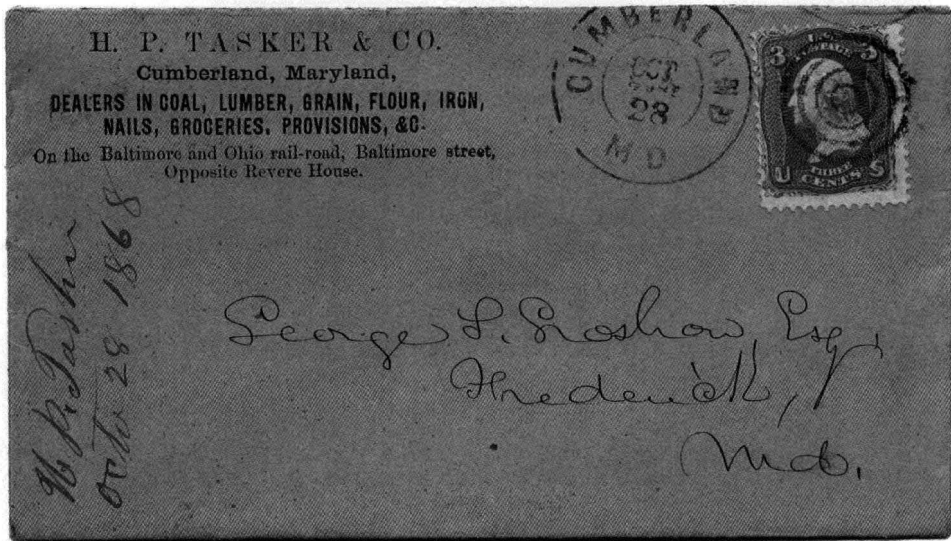 H. P. TASKER & CO.
Cumberland, Maryland,
DEALERS IN COAL, LUMBER, GRAIN, FLOUR, IRON,
NAILS, GROCERIES, PROVISIONS, &C.
On the Baltimore and Ohio rail-road, Baltimore street,
Opposite Revere House.
CUMBERLAND
OCT
28
MD
U.S.
POSTAGE
3 3
THREE
CENTS
U S
H. P. Tasker
Octo 28 1868
George L. Groshow, Esq,
Frederick,
Md.